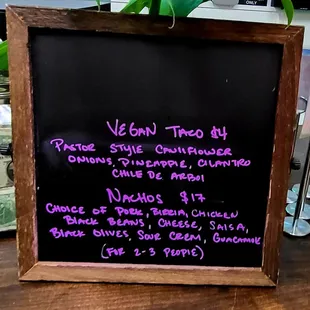 ONLY
VEGAN TACO $4
PASTOR STYLE CAULIFLOWER
ONIONS, PINEAPPLE, CILANTRO
CHILE DE ARBOL
NACHOS $17
CHOICE OF PORK, BIRRIA, CHICKEN
BLACK BEANS, CHEESE, SALSA,
BLACK OLIVES, SOUR CREM, GUACAMOLE
(FOR 2-3 PEOPLE)